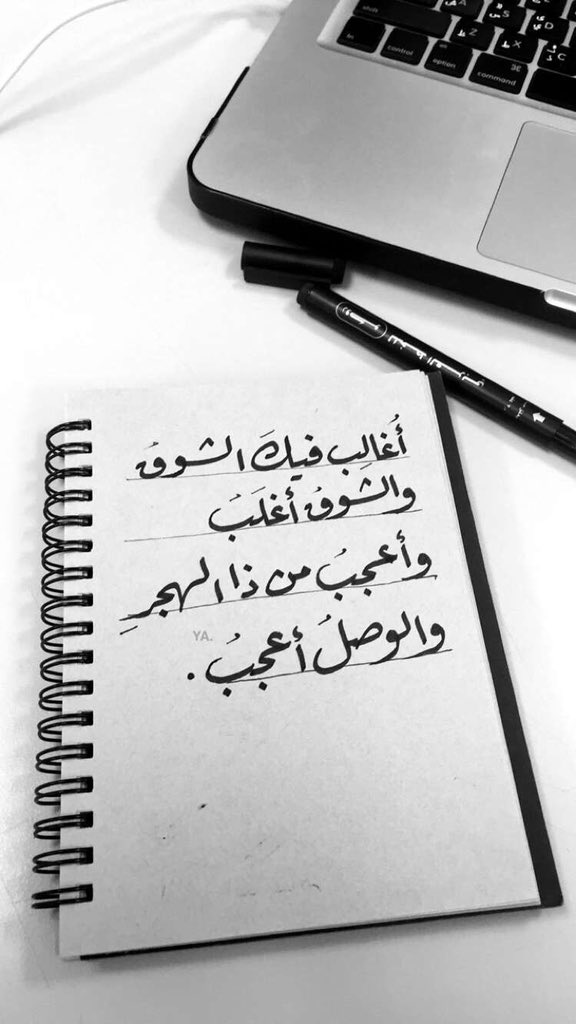 أُغالِب فيكَ الشوقُ
والشوقُ أغلَبُ
وأعجبُ من ذا الهجرِ
والوصلُ أعجبُ.
YA.
shift
A
S
D
Z
X
C
fn
control
option
command
⌘